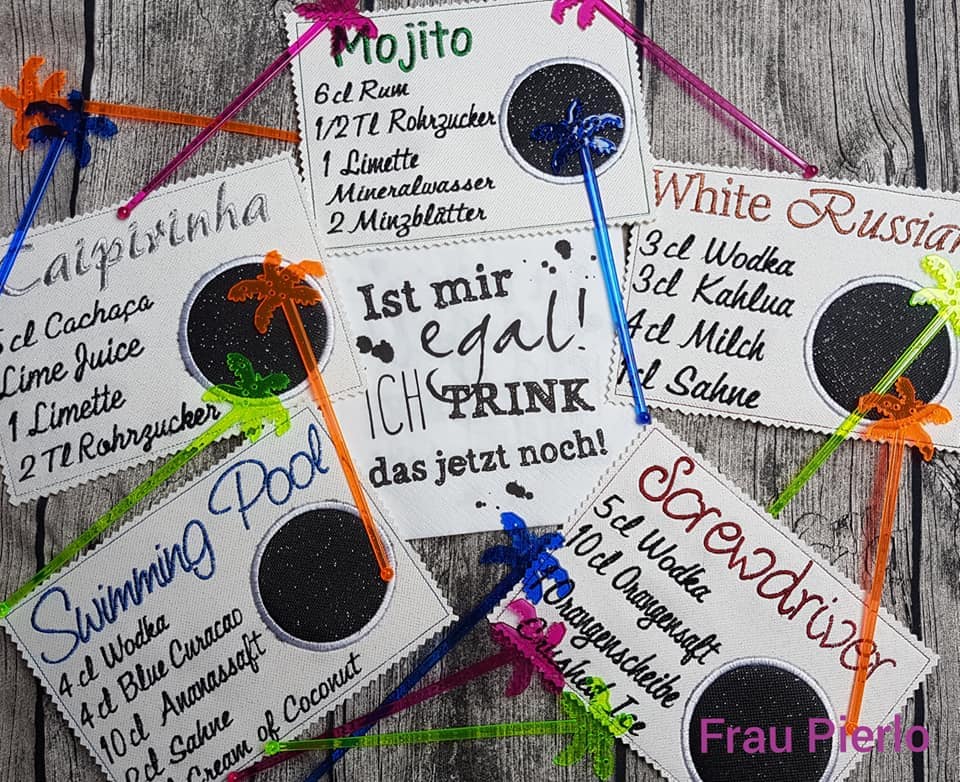 Mojito
6 cl Rum
1/2 Tl Rohrzucker
1 Limette
Mineralwasser
2 Minzblätter
Caipirinha
cl Cachaça
Lime Juice
1 Limette
2 Tl Rohrzucker
Ist mir
egal!
ICH TRINK
das jetzt noch!
White Russian
3 cl Wodka
3 cl Kahlua
4 cl Milch
cl Sahne
Swimming Pool
4 cl Wodka
4 cl Blue Curacao
10 cl Ananassaft
2 cl Sahne
Cream of Coconut
Screwdriver
5 cl Wodka
10 cl Orangensaft
Orangenscheibe
Crushed Ice
Frau Pierlo